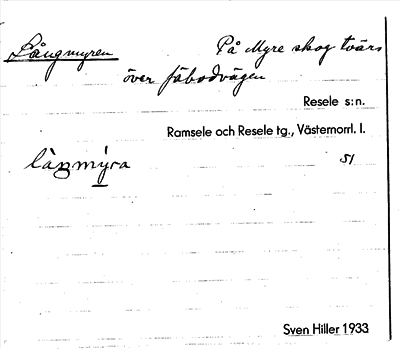 Långmyren På Myre skog tvärs
över fäbodvägen
Resele s:n.
Ramsele och Resele tg., Västernorrl. l.
làŋmy̌ra 51
Sven Hiller 1933